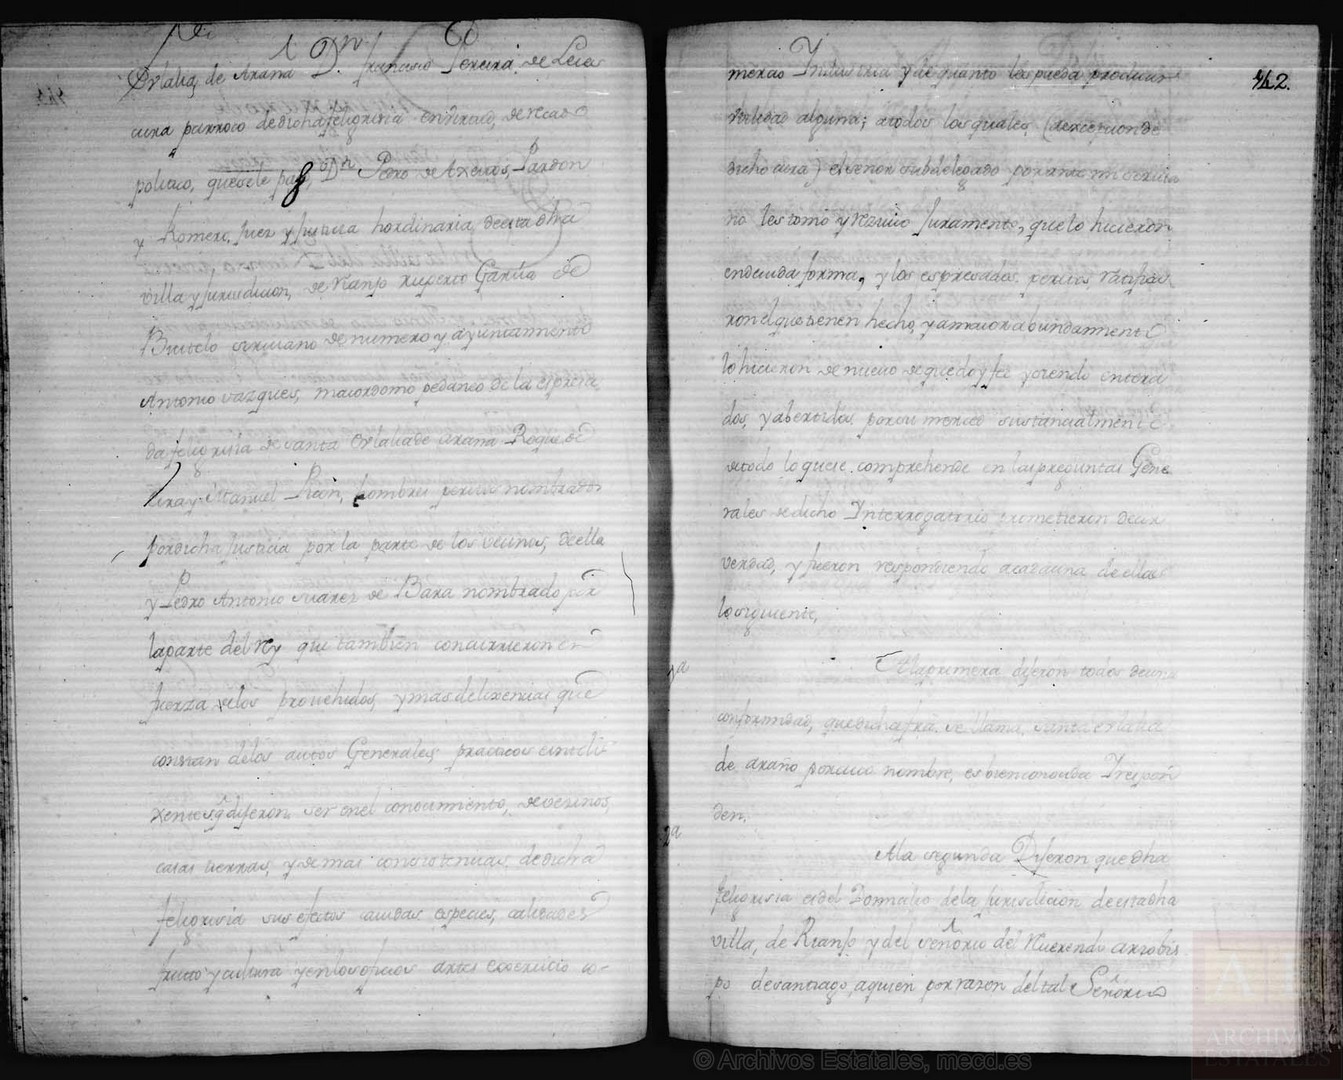 Orlalia, de Arana Dn. francisco Pereira, de Leis
cura parroco dedichafeligrisia envirtud, derecado
politico, queesele paso, Dn Pedro de Axeiros, Pardon
y Romero, Juez y Justicia hordinaria, deesta dha
villa y Jurisdicion, de Rianjo Ruperto Garcia de
Buitelo escrivano denumero y ayuntamiento
Antonio vazques, maiordomo pedaneo de la espresa
dafeligrisia de santa Orlaliade arana Roque de
y Manuel hombres peritos nombrados
pordicha Justicia por la parte de los vecinos, deella
y Pedro Antonio suarez de Bara nombrado por
laparte del Rey que tambien concurrieron en
fuerza delos provehidos, ymas delixencias que
constan delos autos Generales, practicos eynteli
xentes q dijeron ser enel conocimiento, devecinos,
casas tierras, ydemas concistencias, dedicha
feligrisia sus efectos caudas especies, calidades
frutto y cultura yenlosoficios artes exercicio co-
462.
mercio Industria y de quanto lespueda producir
utilidad alguna; atodos los quales, (aexcepcionde
dicho cura) elseñor subdelegado porante mi escriva
no les tomo y recivio Juramento, quelo hicieron
endevida forma, y los espresados, peritos, ratifica
ronelquetienen hecho, yamaiorabundamiento
lohicieron denuevo dequedoyfee ysiendo entera
dos, yabertidos, porsu merced sustancialmente
detodo loquese comprehende enlaspreguntas Gene
rales dedicho Ynterrogatorio prometieron decir
verdad, y fueron respondiendo acadauna deellas
losiguiente,
1a Alaprimera dijeron todos deuna
conformidad, quedichafra. se llama, Santa erlalia
de araño porcuio nombre, esbienconocida Yrespon
den.
2a Ala segunda Dijeron quedha
feligrisia esdel Domnalio dela Jurisdicion deestadha
villa, de Rianjo y del señorio del Reverendo arzobis
po desantiago, aquien porrazon deltal Señorio
© Archivos Estatales, mecd.es
ARCHIVOS
ESTATALES